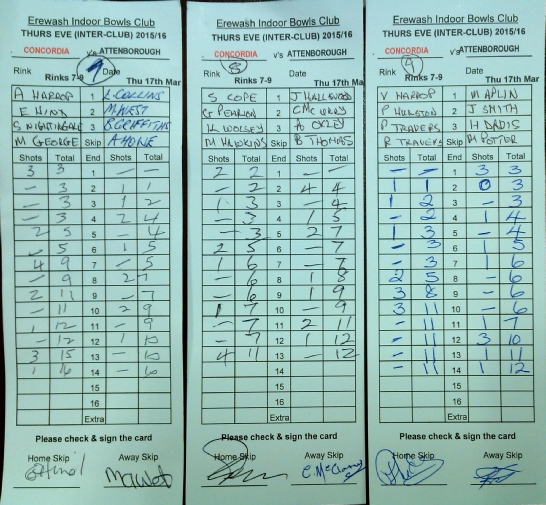 Erewash Indoor Bowls Club
THURS EVE (INTER-CLUB) 2015/16
CONCORDIA v's ATTENBOROUGH
Rink Rinks 7-9 9 Date
Thu 17th Mar
A HARROP 1 L COLLINS
E HIND 2 M WEST
S NIGHTINGALE 3 B GRIFFITHS
M GEORGE Skip A HONE
Shots Total End Shots Total
3 3 1 - -
- 3 2 1 1
- 3 3 1 2
- 3 4 2 4
2 5 5 - 4
- 5 6 1 5
4 9 7 - 5
- 9 8 2 7
2 11 9 - 7
- 11 10 2 9
1 12 11 - 9
- 12 12 1 10
3 15 13 - 10
1 16 14 - 10
15
16
Extra
Please check & sign the card
Home Skip Away Skip
Erewash Indoor Bowls Club
THURS EVE (INTER-CLUB) 2015/16
CONCORDIA v's ATTENBOROUGH
Rink 8 Date
Rinks 7-9 Thu 17th Mar
S COPE 1 J HALLWOOD
G PEARSON 2
H WOLSEY 3 A OXLEY
M HAWKINS Skip B THOMAS
Shots Total End Shots Total
2 2 1 - -
- 2 2 4 4
1 3 3 - 4
- 3 4 1 5
- 3 5 2 7
2 5 6 - 7
1 6 7 - 7
- 6 8 1 8
- 6 9 1 9
1 7 10 - 9
- 7 11 2 11
- 7 12 1 12
4 11 13 - 12
14
15
16
Extra
Please check & sign the card
Home Skip Away Skip
Erewash Indoor Bowls Club
THURS EVE (INTER-CLUB) 2015/16
CONCORDIA v's ATTENBOROUGH
Rink 9 Date
Rinks 7-9 Thu 17th Mar
V HARROP 1 M APLIN
P HULSTON 2 J SMITH
P TRAVERS 3 H DADIS
R TRAVERS Skip M POTTER
Shots Total End Shots Total
- - 1 3 3
1 1 2 0 3
1 2 3 - 3
- 2 4 1 4
1 3 5 - 4
- 3 6 1 5
- 3 7 1 6
2 5 8 - 6
3 8 9 - 6
3 11 10 - 6
- 11 11 1 7
- 11 12 3 10
- 11 13 1 11
- 11 14 1 12
15
16
Extra
Please check & sign the card
Home Skip Away Skip